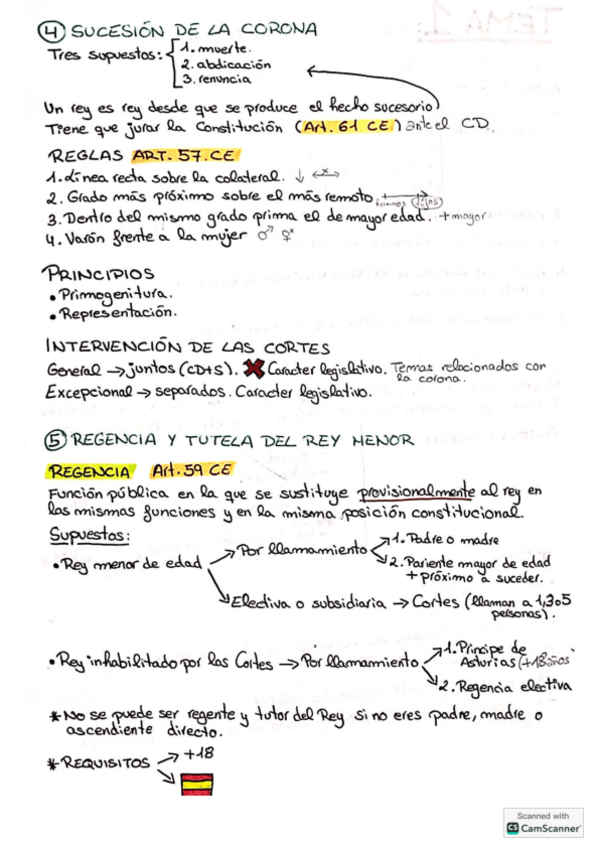 ④ SUCESIÓN DE LA CORONA
Tres supuestos: 1. muerte.
2. abdicación
3. renuncia
Un rey es rey desde que se produce el hecho sucesorio
Tiene que jurar la Constitución (Art. 61 CE) ante el CD.
REGLAS ART. 57. CE
1. Línea recta sobre la colateral. ↓
2. Grado más próximo sobre el más remoto. hermanos (hijos)
3. Dentro del mismo grado prima el de mayor edad. + mayor
4. Varón frente a la mujer ♂ ♀
PRINCIPIOS
• Primogenitura.
• Representación.
INTERVENCIÓN DE LAS CORTES
General → juntos (CD+S). X Caracter legislativo. Temas relacionados con
la corona.
Excepcional → separados. Caracter legislativo.
⑤ REGENCIA Y TUTELA DEL REY MENOR
REGENCIA Art. 59 CE
Función pública en la que se sustituye provisionalmente al rey en
las mismas funciones y en la misma posición constitucional.
Supuestos:
• Rey menor de edad → Por llamamiento → 1. Padre o madre
2. Pariente mayor de edad
+ próximo a suceder.
→ Electiva o subsidiaria → Cortes (llaman a 1,3 o 5
personas).
• Rey inhabilitado por las Cortes → Por llamamiento → 1. Principe de
Asturias (+18 años
2. Regencia electiva
* No se puede ser regente y tutor del Rey si no eres padre, madre o
ascendiente directo.
* REQUISITOS → +18
Scanned with
CS CamScanner